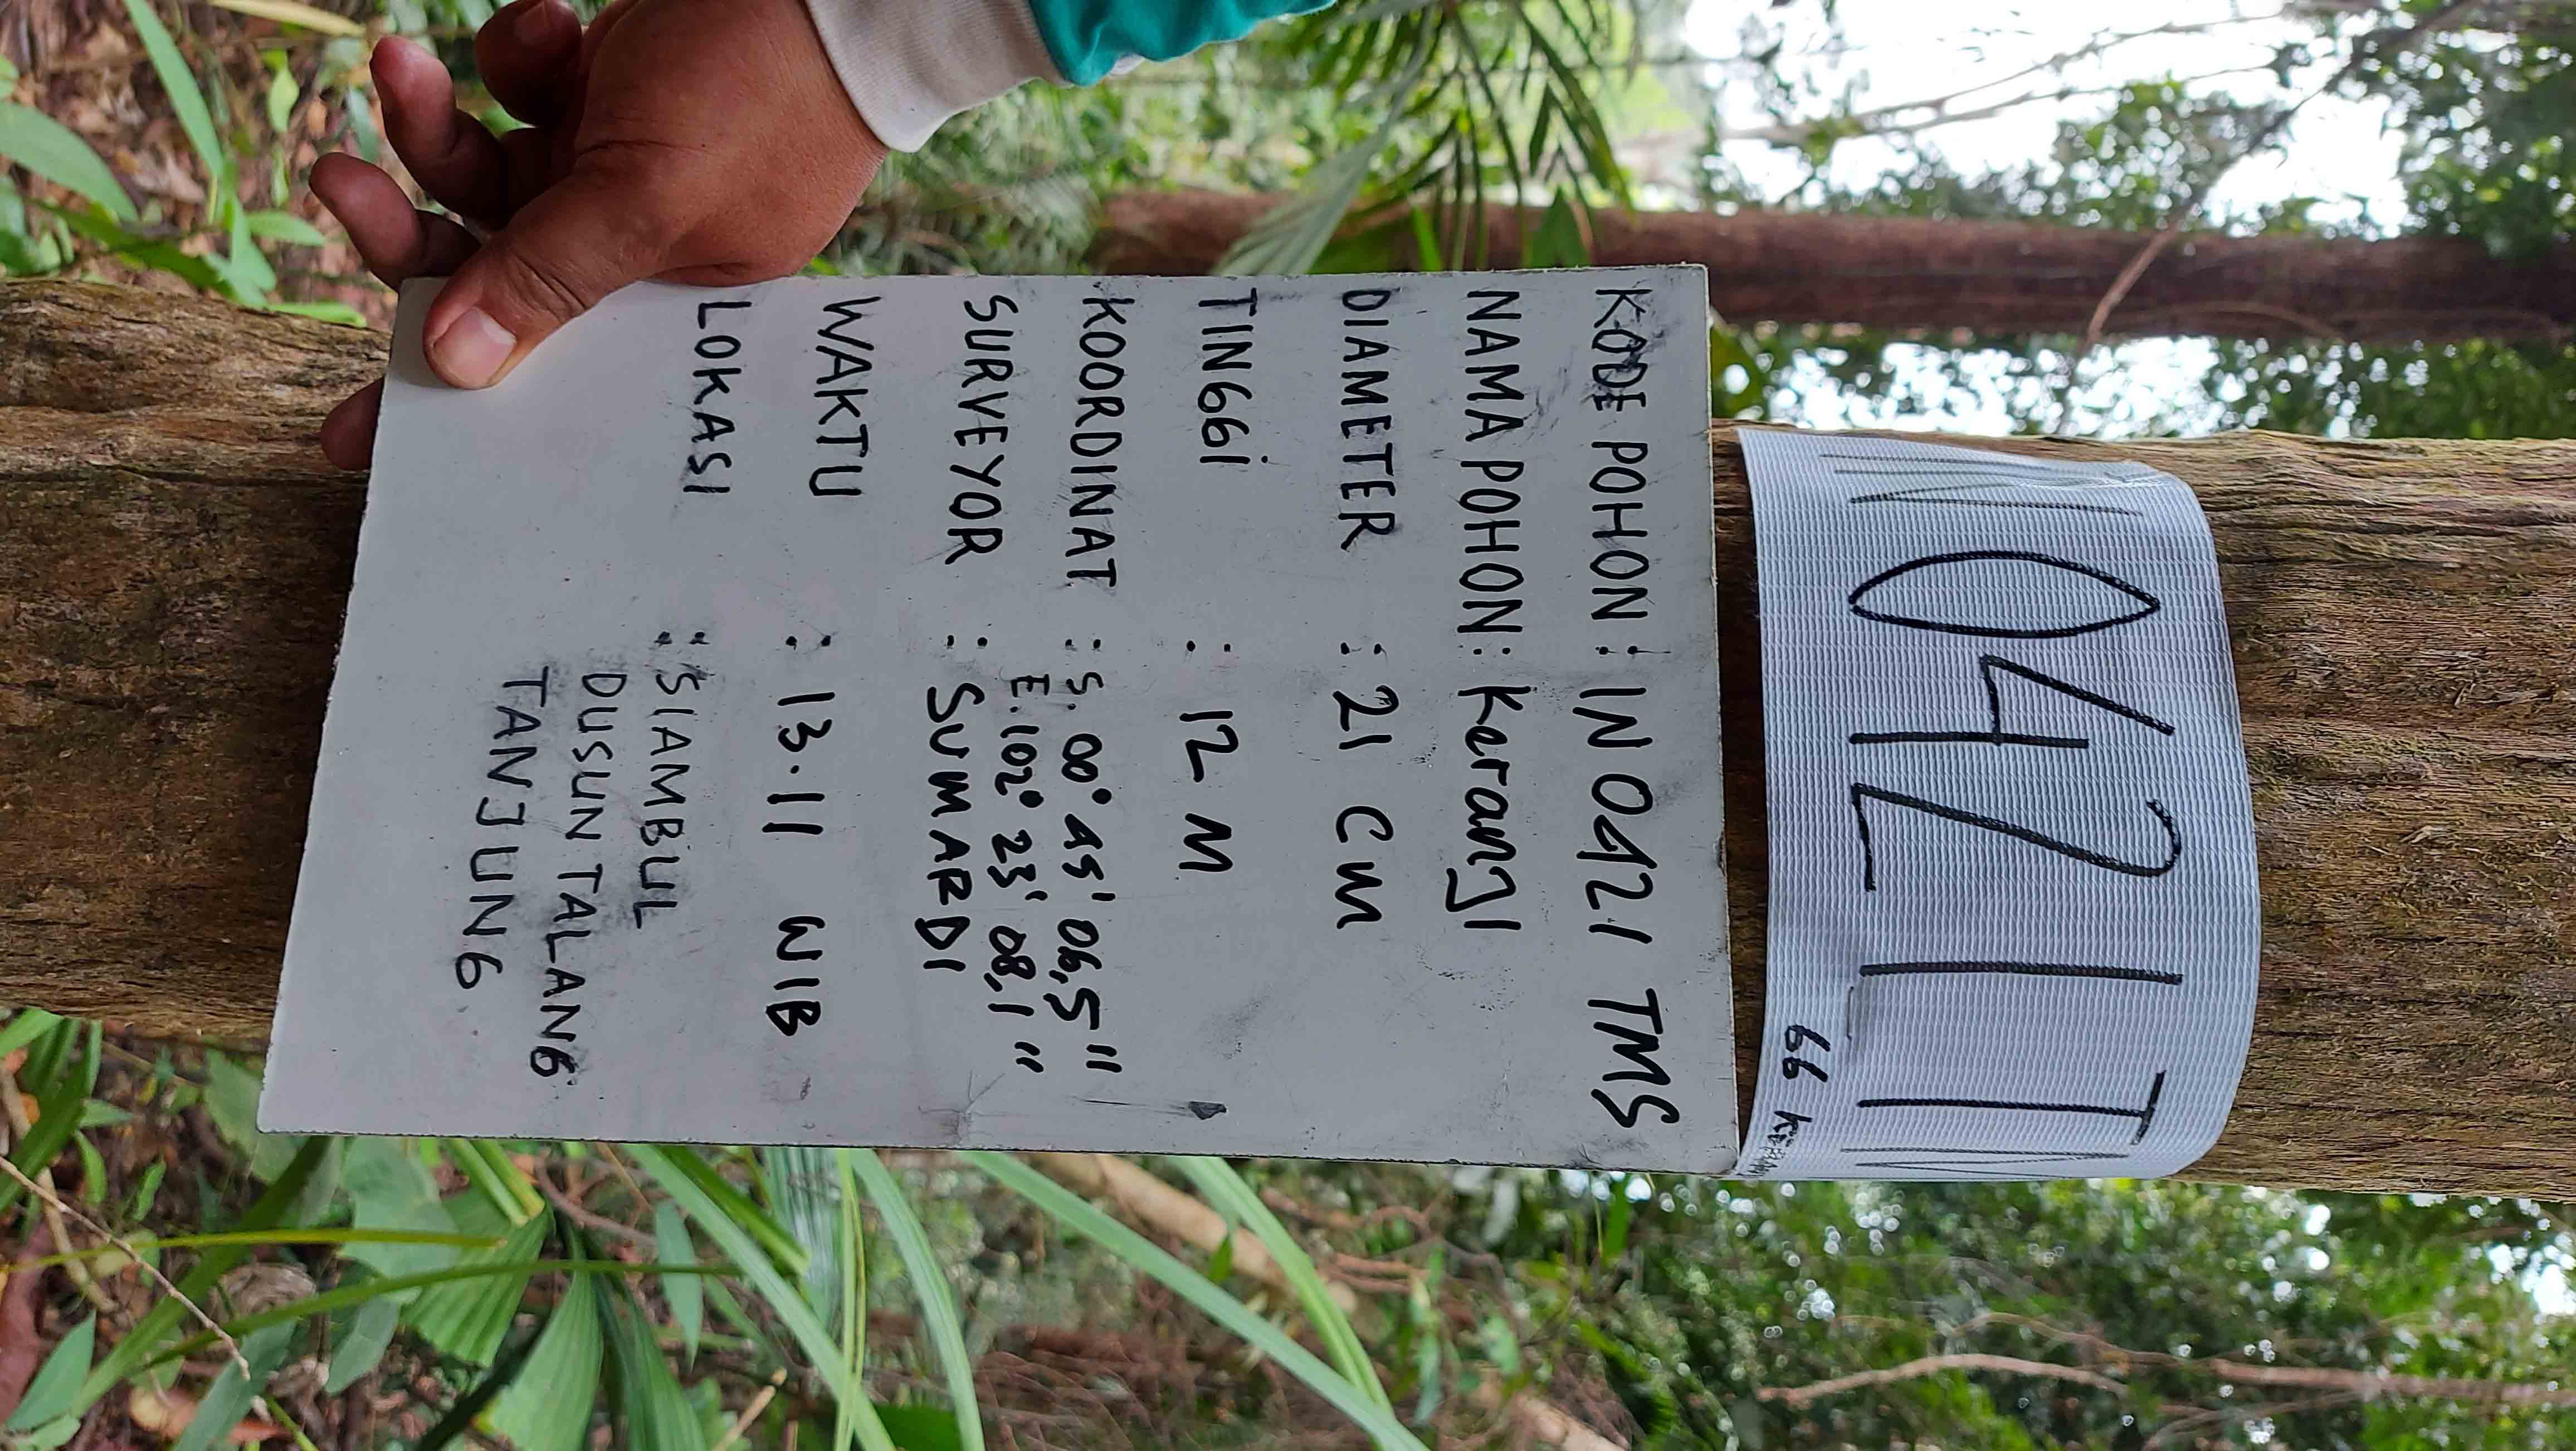 N 0421 T
66 k
KODE POHON : IN 0421 TMS
NAMA POHON : Keranji
DIAMETER : 21 CM
TINGGi : 12 M
KOORDINAT : S. 00° 45' 06,5"
E. 102° 23' 08,1"
SURVEYOR : SUMARDI
WAKTU : 13.11 WIB
LOKASI : SIAMBUL
DUSUN TALANG
TANJUNG